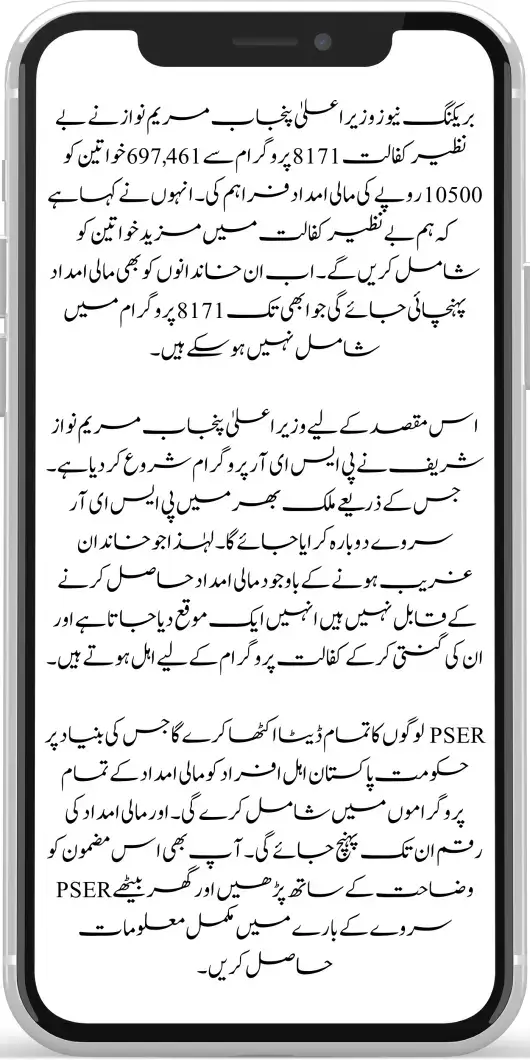 بریکنگ نیوز وزیر اعلیٰ پنجاب مریم نواز نے بے
نظیر کفالت 8171 پروگرام سے 697,461 خواتین کو
10500 روپے کی مالی امداد فراہم کی۔ انہوں نے کہا ہے
کہ ہم بے نظیر کفالت میں مزید خواتین کو
شامل کریں گے۔ اب ان خاندانوں کو بھی مالی امداد
پہنچائی جائے گی جو ابھی تک 8171 پروگرام میں
شامل نہیں ہو سکے ہیں۔
اس مقصد کے لیے وزیر اعلیٰ پنجاب مریم نواز
شریف نے پی ایس ای آر پروگرام شروع کر دیا ہے۔
جس کے ذریعے ملک بھر میں پی ایس ای آر
سروے دوبارہ کرایا جائے گا۔ لہٰذا جو خاندان
غریب ہونے کے باوجود مالی امداد حاصل کرنے
کے قابل نہیں ہیں انہیں ایک موقع دیا جاتا ہے اور
ان کی گنتی کر کے کفالت پروگرام کے لیے اہل ہوتے ہیں۔
PSER لوگوں کا تمام ڈیٹا اکٹھا کرے گا جس کی بنیاد پر
حکومت پاکستان اہل افراد کو مالی امداد کے تمام
پروگراموں میں شامل کرے گی۔ اور مالی امداد کی
رقم ان تک پہنچ جائے گی۔ آپ بھی اس مضمون کو
وضاحت کے ساتھ پڑھیں اور گھر بیٹھے PSER
سروے کے بارے میں مکمل معلومات
حاصل کریں۔